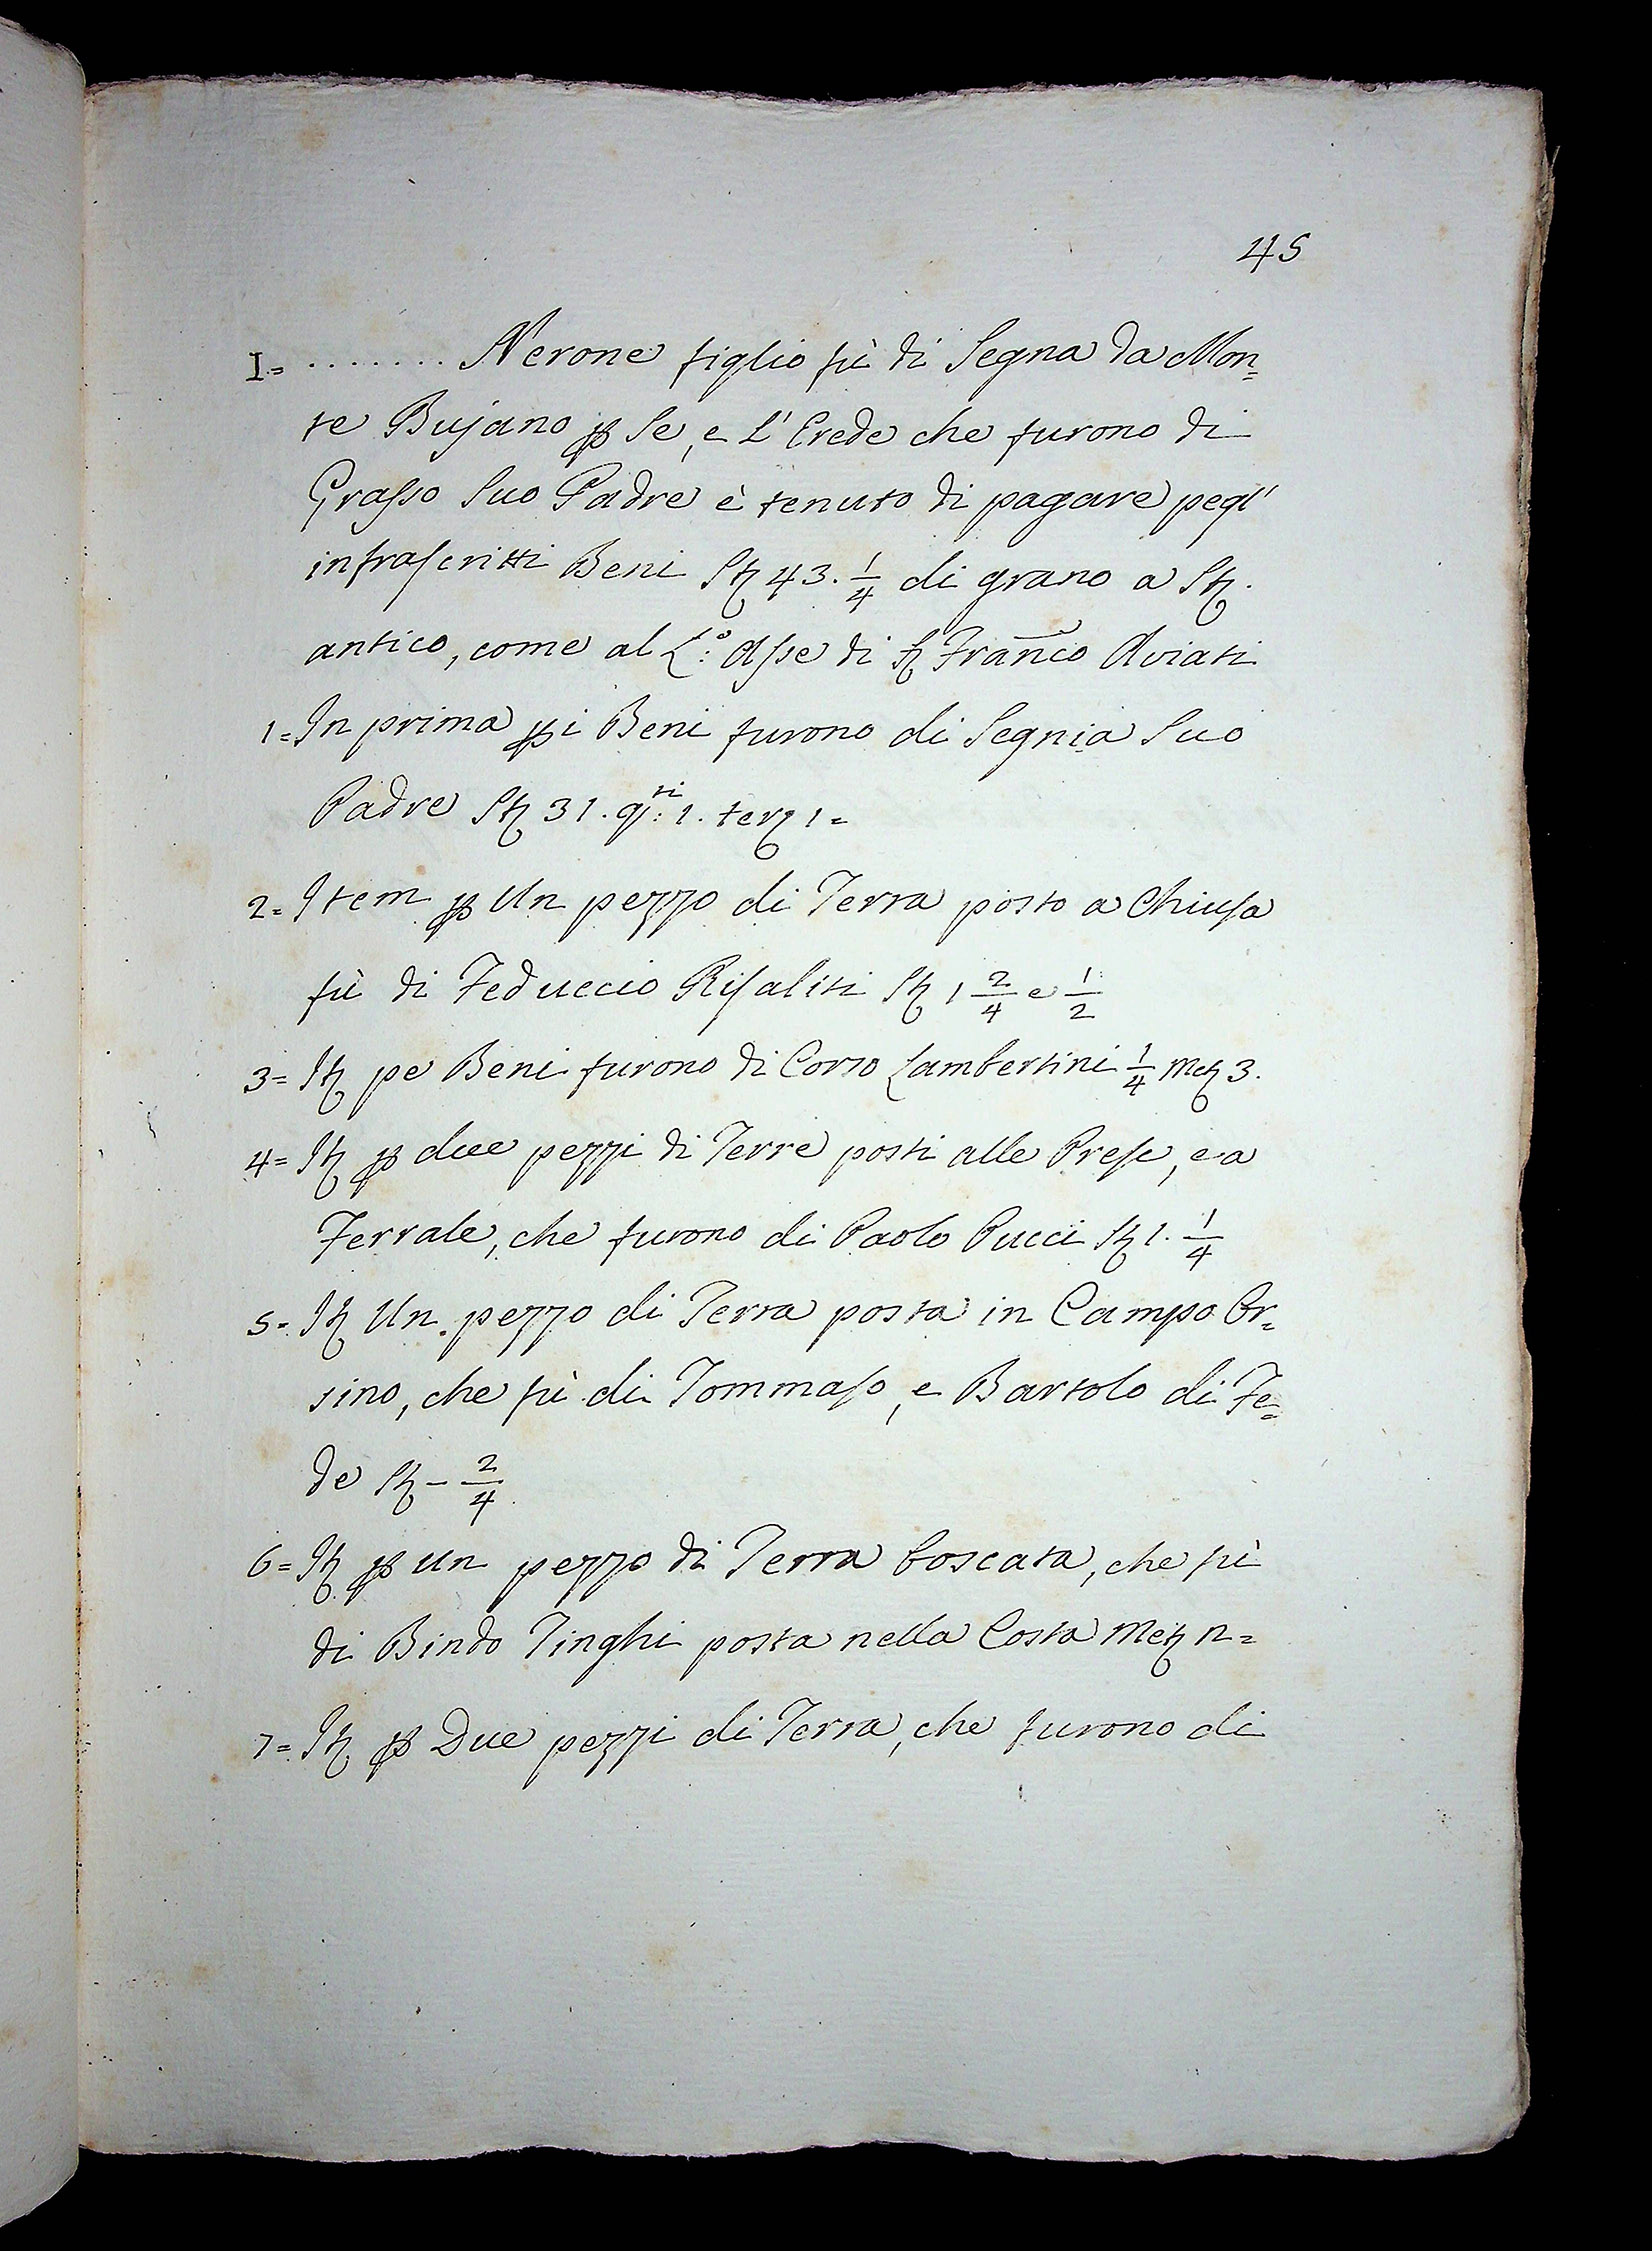 45
I= ........ Nerone figlio fù di Segna da Mon=
te Bujano ꝑ Se, e L' Erede che furono di
Grasso Suo Padre è tenuto di pagare pegl'
infrascritti Beni St 43. 1/4 di grano a St.
antico, come al L:o Asse di S Franco Aviati
1= In prima ꝑi Beni furono di Segnia Suo
Padre St 31. q:ti 1. terz 1=
2= Item ꝑ Un pezzo di Terra posto a Chiusa
fù di Feduccio Risaliti St 1 2/4 e 1/2
3= It pe Beni furono di Corso Lambertini 1/4 Met 3.
4= It ꝑ due pezzi di Terre posti alle Prese, e a
Ferrale, che furono di Paolo Pucci St 1. 1/4
5= It Un pezzo di Terra posta in Campo Or=
sino, che fù di Tommaso, e Bartolo di Fe=
de St - 2/4
6= It ꝑ un pezzo di Terra boscata, che fù
di Bindo Tinghi posta nella Costa Met n=
7= It ꝑ Due pezzi di Terra, che furono di